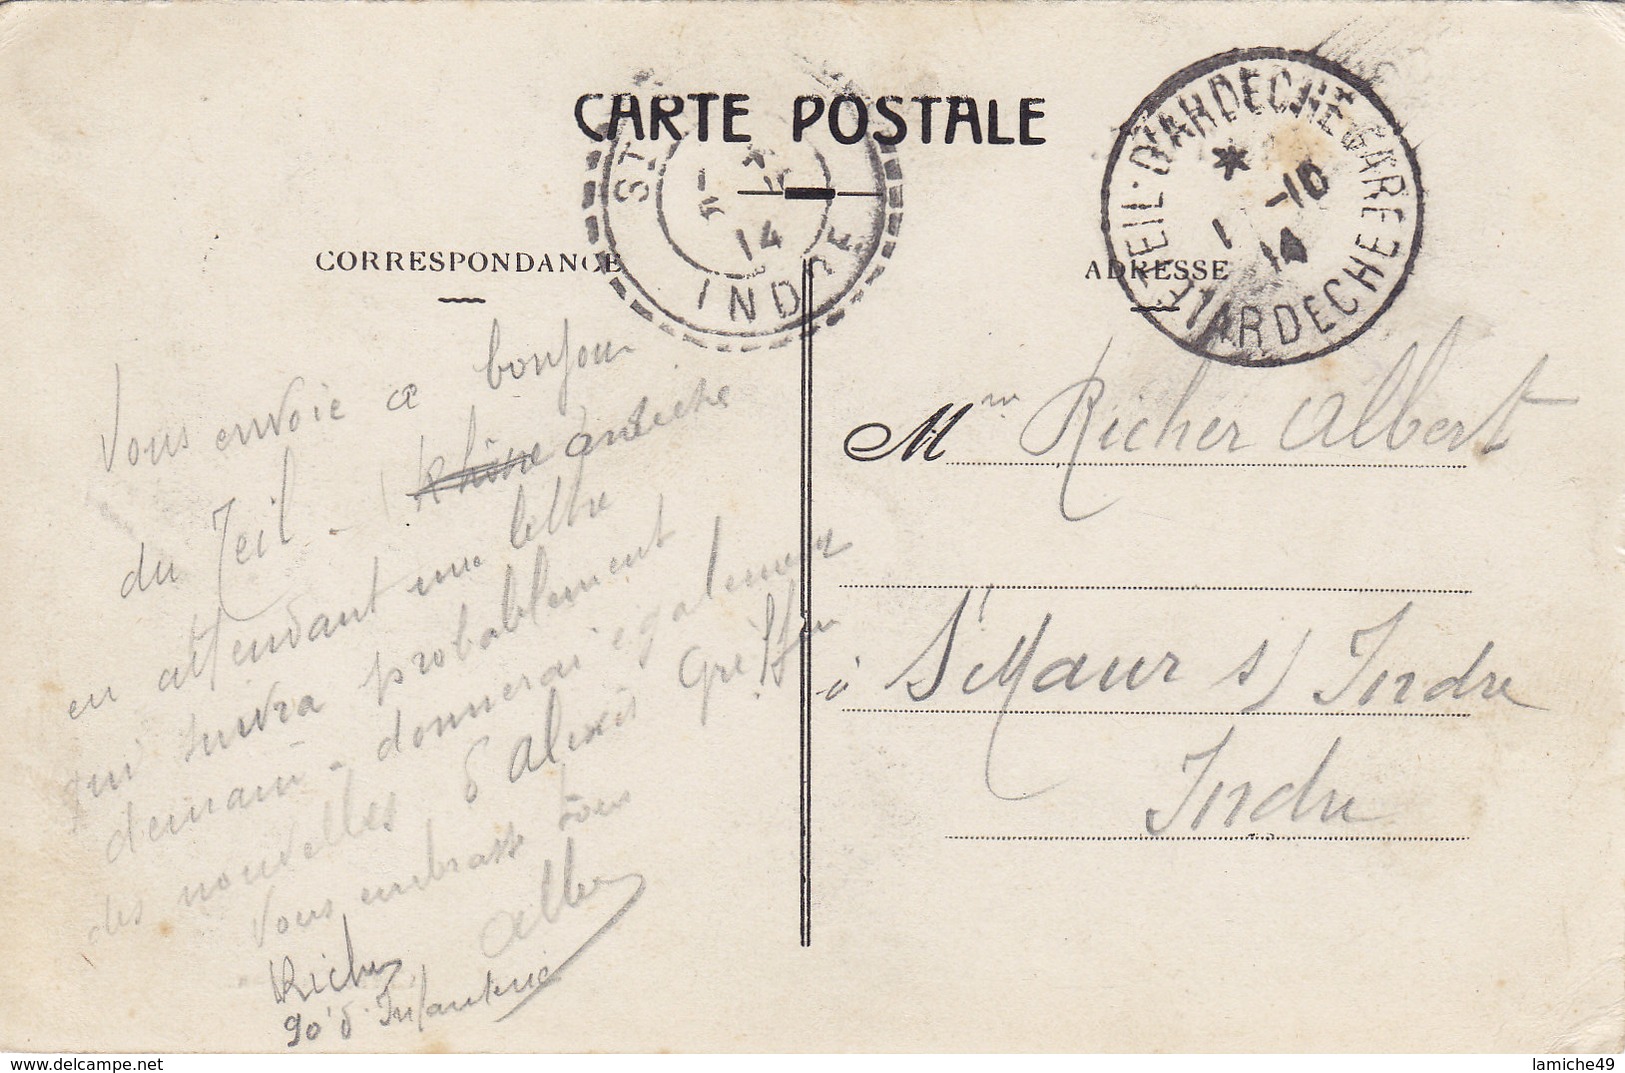 CARTE POSTALE
ST
14
INDRE
TEIL-D'ARDECHE GARE
* 1 -10
14
ARDECHE
CORRESPONDANCE
ADRESSE
Vous envoie ce bonjour
du Teil - Rhône Ardèche
en attendant une lettre
qui suivra probablement
demain - donnerai également
des nouvelles d'Alexis Griffon
Vous embrasse tous
Albert
Richer
90e d'Infanterie
Mme Richer Albert
à St Maur s/ Indre
Indre
lamiche49